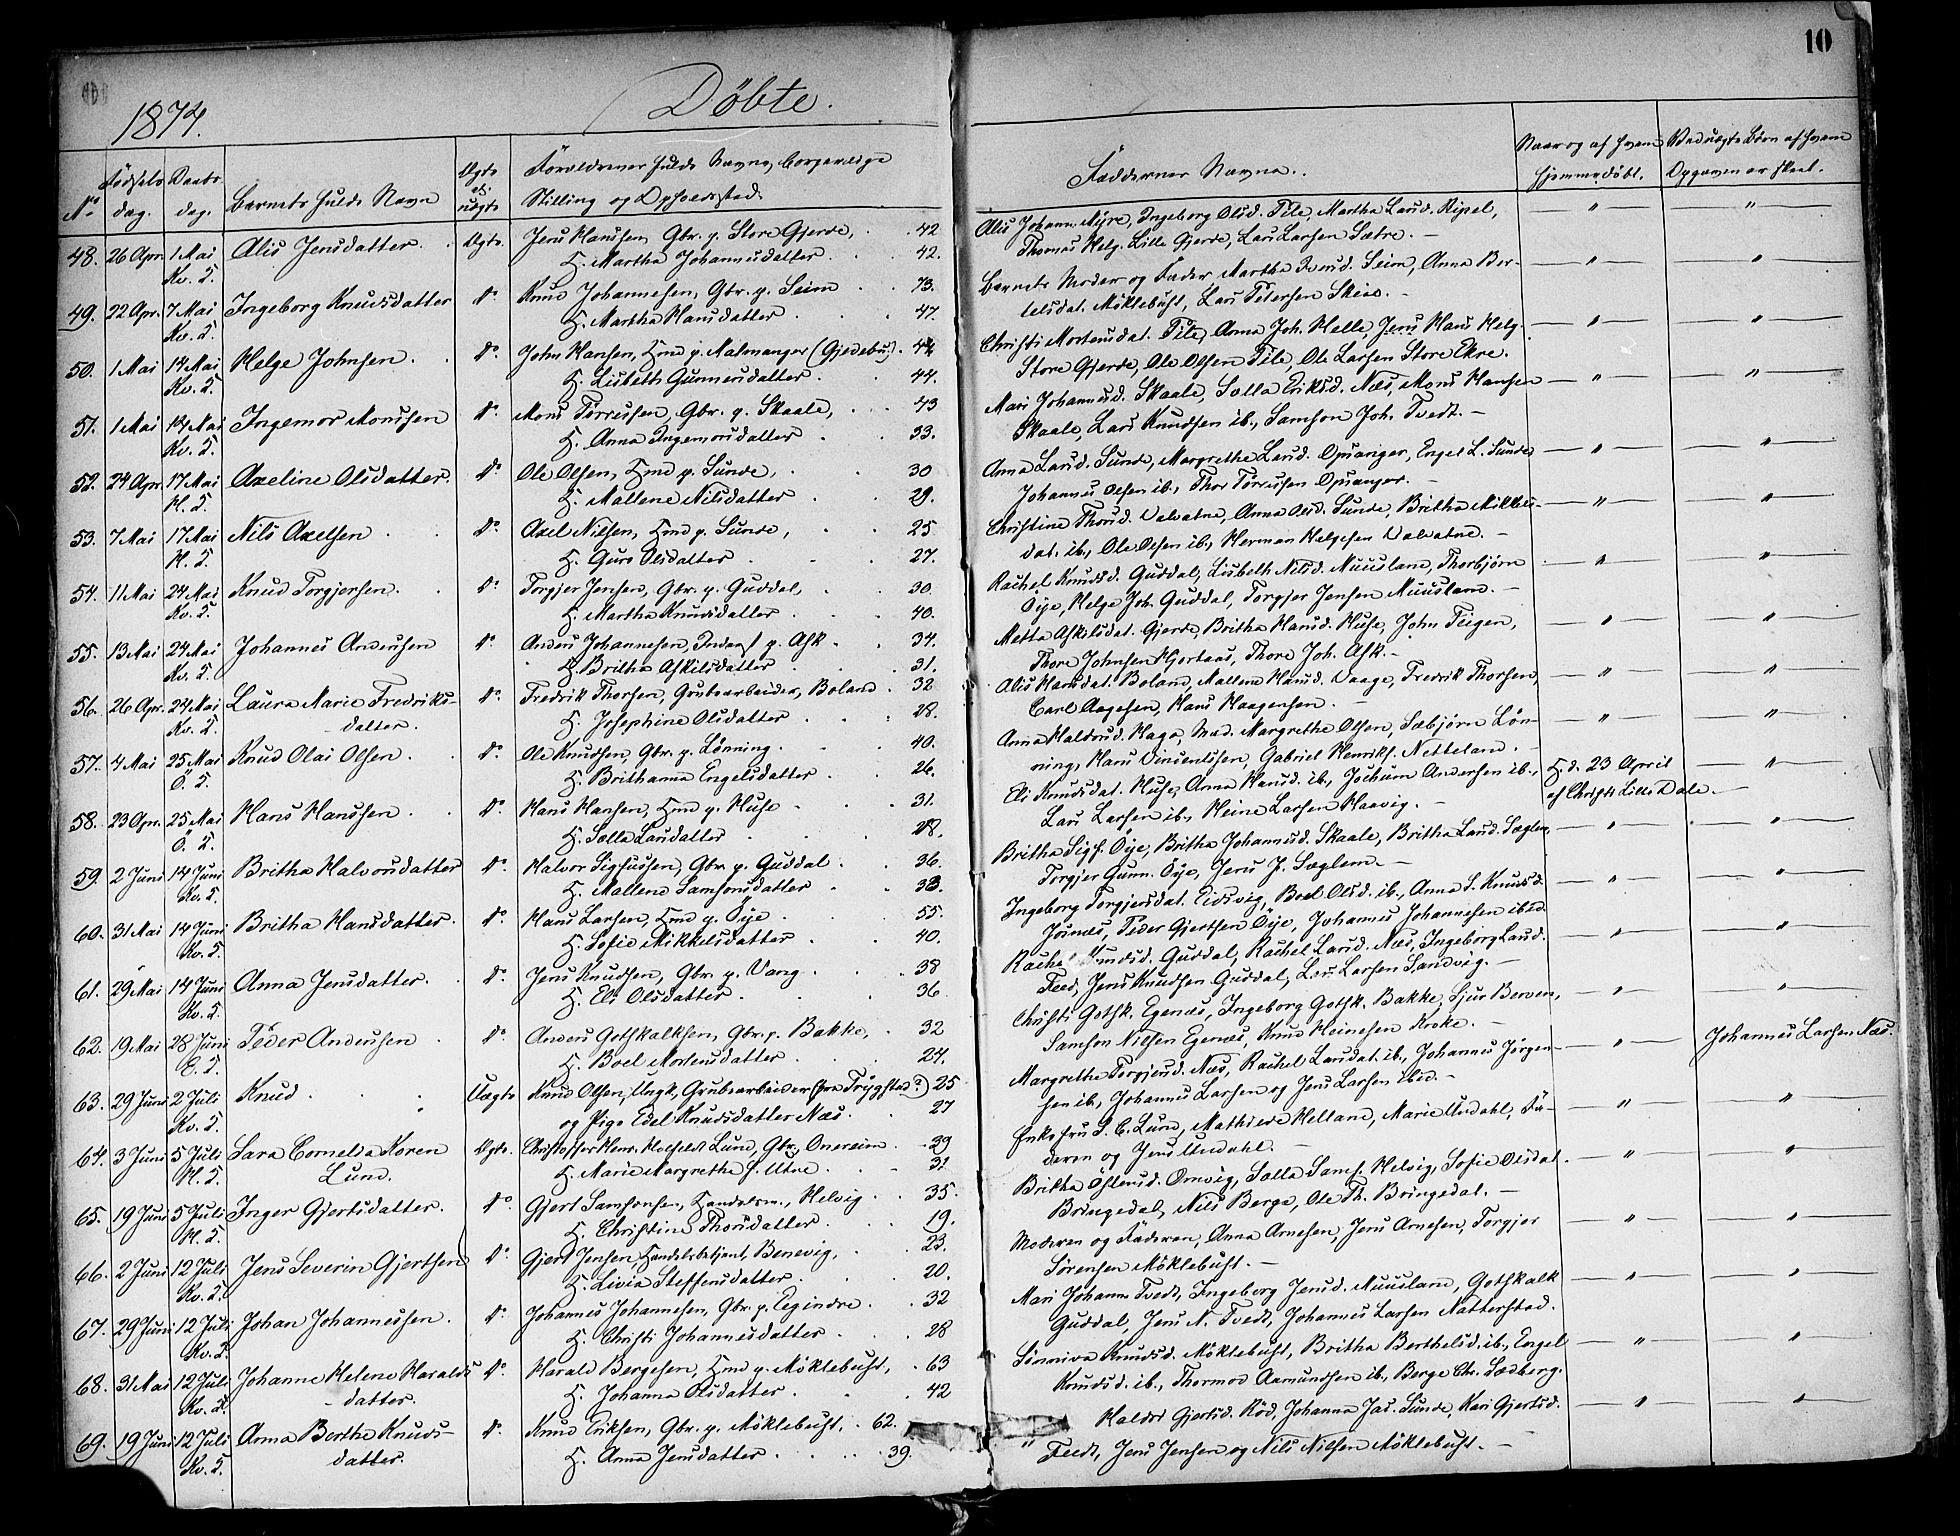 10
1874.
Döbte.
No
Födsels dag.
Daabs dag.
Barnets fulde Navn
Ægte el. uægte
Forældrenes fulde Navne, borgerlige
Stilling og Opholdssted.
Faddernes Navne.
Naar og af hvem
hjemmedöbt.
Uædte Börn af hvem
Opgaven er skeet.
48. 26 Apr. 1 Mai Kv. S. Alis Jensdatter. Ægte. Jens Hanssen, Gbr. p. Store Gjerde, 42
H. Martha Johannesdatter 42.
Alis Johann. Myre, Ingeborg Olsd. Tile, Martha Larsd. Ripel,
Thomas Helg. Lille Gjerde, Lars Larsen Sætre. —
49. 22 Apr. 7 Mai Kv. S. Ingeborg Knudsdatter do Knud Johannesen, Gbr. p. Seim 73.
H. Martha Hansdatter 47.
Barnets Moder og Fader Martha Knud. Seim, Anna Ber-
telsdat. Möklebust, Lars Petersen Skeie. —
50. 1 Mai 14 Mai Kv. S. Helge Johnsen. do John Hansen, Hmd p. Malmanger (Gjedebu) 44
H. Lisbeth Gunnersdatter 44.
Christi Mortensdat. Tile, Anna Joh. Helle, Jens Hans Helg.
Store Gjerde, Ole Olsen Tile, Ole Larsen Store Ekre.
51. 1 Mai 14 Mai Kv. S. Ingemor Monssen do Mons Torressen, Gbr. p. Skaale, 43
H. Anna Ingemorsdatter 33.
Mari Johannesd. Skaale, Solla Eriksd. Næs, Mons Hansen
Skaale, Lars Knudsen ib., Samson Joh. Tvedt. —
52. 24 Apr. 17 Mai H. S. Axeline Olsdatter. do Ole Olsen, Hmd p. Sunde, 30
H. Mallene Nilsdatter 29.
Anna Larsd. Sunde, Margrethe Larsd. Opsanger, Engel L. Sunde
Johannes Olsen ib., Thor Torressen Opsanger. —
53. 7 Mai 17 Mai H. S. Nils Axelsen do Axel Nilsen, Hmd p. Sunde, 25
H. Guro Olsdatter 27.
Christine Thorsd. Valvatne, Anna Olsd. Sunde, Britha Mikkels-
dat. ib., Ole Olsen ib., Herman Helgesen Valvatne. —
54. 11 Mai 24 Mai Kv. S. Knud Torgjersen. do Torgjer Jensen, Gbr. p. Guddal, 30.
H. Martha Knudsdatter 40.
Rachel Knudsd. Guddal, Lisbeth Nilsd. Muusland, Thorbjörn
Öye, Helge Joh. Guddal, Torgjer Jensen Muusland. —
55. 13 Mai 24 Mai Kv. S. Johannes Anderssen do Anders Johannesen, Inderst p. Ask 34.
H. Britha Askilsdatter 31.
Metta Askilsdat. Gjerde, Britha Hansd. Huse, John Teigen,
Thore Johnsen Hjortaas, Thore Joh. Ask. —
56. 26 Apr. 24 Mai Kv. S. Laura Marie Fredriks-
datter. do Fredrik Thorsen, Grubearbeider, Boland 32
H. Josephine Olsdatter 28.
Alis Hansdat. Boland, Mallene Hansd. Vaage, Fredrik Thorsen,
Carl Aagesen, Hans Haagensen. —
57. 4 Mai 25 Mai Ö. S. Knud Olai Olsen do Ole Knudsen, Gbr. p. Lönning 40.
H. Brithanna Engelsdatter 26.
Anna Haldorsd. Haga, Mad. Margrethe Olsen, Sæbjörn Lön-
ning, Hans Vincentssen, Gabriel Henriks. Netteland. —
58. 23 Apr. 25 Mai Ö. S. Hans Hanssen do Hans Hansen, Hmd p. Huse 31.
H. Solla Larsdatter 28.
Eli Knudsdat. Huse, Anna Hansd. ib., Jochum Andersen ib.,
Lars Larsen ib., Heine Larsen Haavig. —
H. d. 23 April
af Christi Lille Dale. —
59. 2 Juni 14 Juni Kv. S. Britha Halvorsdatter do Halvor Sigfussen, Gbr. p. Guddal 36.
H. Mallene Samsonsdatter 33.
Britha Sigf. Öye, Britha Johannesd. Skaale, Britha Larsd. Sæglem,
Torgjer Gunn. Öye, Jens J. Sæglem. —
60. 31 Mai 14 Juni Kv. S. Britha Hansdatter. do Hans Larsen, Hmd p. Öye 55.
H. Sofie Mikkelsdatter 40.
Ingeborg Torgjersdat. Eidsvig, Boel Olsd. ib., Anna S. Knudsd.
Josnæs, Peder Gjertsen Öye, Johannes Johannesen ibid.
61. 29 Mai 14 Juni Kv. S. Anna Jensdatter. do Jens Knudsen, Gbr. p. Vang 38
H. Eli Olsdatter 36.
Rachel Knudsd. Guddal, Rachel Larsd. Næs, Ingeborg Larsd.
Feed, Jens Knudsen Guddal, Lars Larsen Sandvig. —
62. 19 Mai 28 Juni E. S. Peder Anderssen do Anders Gotskalksen, Gbr. p. Bakke, 32
H. Boel Mortensdatter 24.
Christi Gotsk. Egenæs, Ingeborg Gotsk. Bakke, Sjur Berven,
Samson Nilsen Egenæs, Knud Heinesen Kroke. —
63. 29 Juni 2 Juli Kv. S. Knud Uægte Knud Olsen, Ungk, Grubearbeider (fra Trygstad?) 25
og Pige Edel Knudsdatter Næs 27
Margrethe Torgjersd. Næs, Rachel Larsdat. ib., Johannes Jörgen-
sen ib., Johannes Larsen og Jens Larsen ibid. —
Johannes Larsen Næs.
64. 3 Juni 5 Juli H. S. Sara Cornelia Koren
Lund. Ægte. Christoffer Lund, Gbr. Onereim 39
H. Marie Margrethe f. Utne 31
Enkefru S. C. Lund, Mathilde Helland, Marie Undahl, Fa-
deren og Jens Undahl. —
65. 19 Juni 5 Juli H. S. Inger Gjertsdatter. do Gjert Samsonsen, Handelsm., Helvig 35.
H. Christine Thorsdatter 19.
Britha Östensd. Omvig, Solla Sams. Helvig, Sofie Olsdat.
Bringedal, Nils Berge, Ole Th. Bringedal. —
66. 2 Juni 12 Juli Kv. S. Jens Severin Gjertsen do Gjert Jensen, Handelsbetjent, Benevig, 23.
H. Livia Steffensdatter 20.
Moderen og Faderen, Anna Arnesen, Jens Arnesen, Torgjer
Sörensen Möklebust. —
67. 29 Juni 12 Juli Kv. S. Johan Johannessen. do Johannes Johannesen, Gbr. p. Eigindre 32
H. Christi Johannesdatter 28
Mari Johanns Tvedt, Ingeborg Jensd. Muusland, Gotskalk
Guddal, Jens N. Tvedt, Johannes Larsen Natterstad.
68. 31 Mai 12 Juli Kv. S. Johanne Helene Haralds
datter. do Harald Bergesen, Hmd p. Möklebust, 63
H. Johanna Olsdatter 42
Sönniva Knudsd. Möklebust, Britha Berthelsd. ib., Engel
Knudsd. ib., Thormod Aamundsen ib., Berge Chr. Ladberg.
69. 19 Juni 12 Juli Kv. S. Anna Bertha Knuds-
datter. do Knud Eriksen, Gbr. p. Möklebust, 62.
H. Anna Jensdatter 39.
Haldis Gjertsd. Röd, Johanna Jac. Sunde, Kari Gjertsd.
Feedt, Jens Jensen og Nils Nilsen Möklebust. —